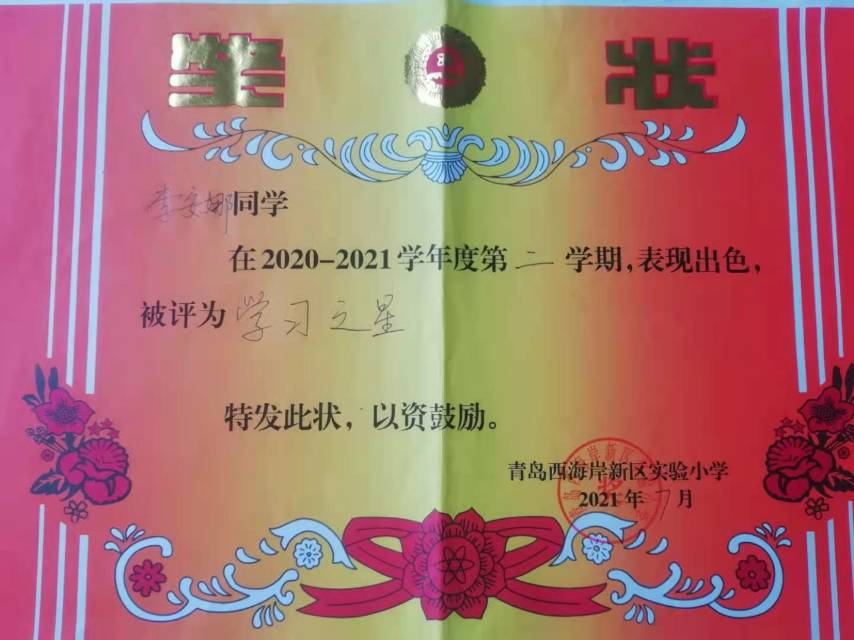 奖状
李安娜同学
在2020-2021学年度第二学期,表现出色,
被评为学习之星
特发此状,以资鼓励。
青岛西海岸新区实验小学
2021年7月